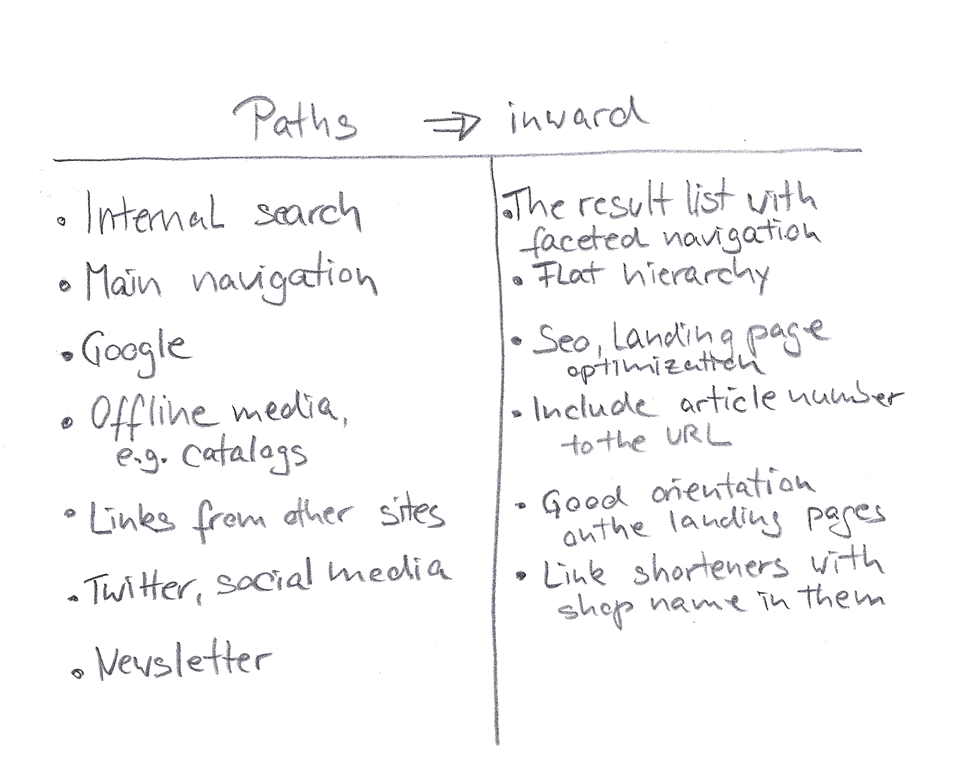 Paths ⇒ inward
• Internal search
• Main navigation
• Google
• Offline media,
e.g. catalogs
• Links from other sites
• Twitter, social media
• Newsletter
• The result list with
faceted navigation
• Flat hierarchy
• Seo, Landing page
optimization
• Include article number
to the URL
• Good orientation
on the landing pages
• Link shorteners with
shop name in them